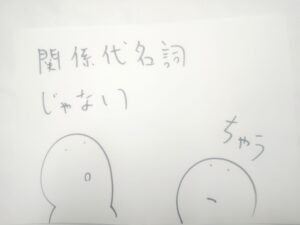 関係代名詞
じゃない
ちゃう